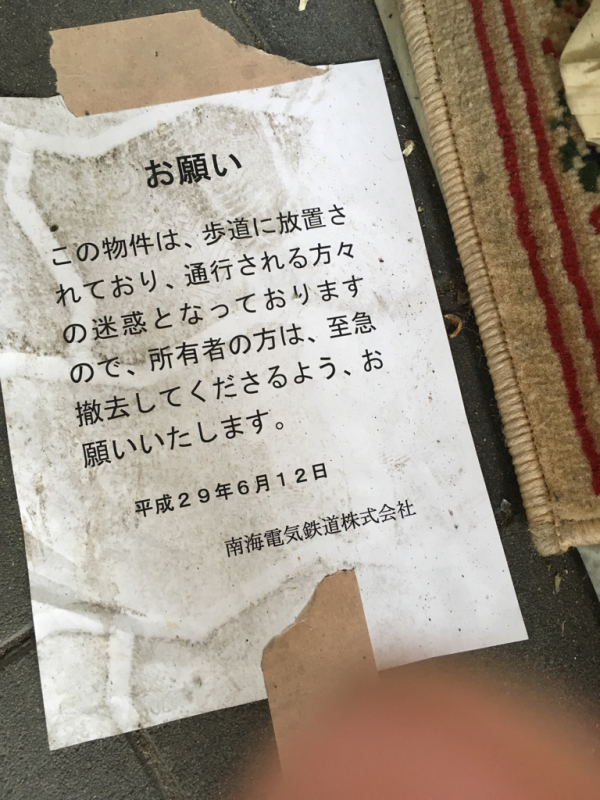 お願い
この物件は、歩道に放置さ
れており、通行される方々
の迷惑となっております
ので、所有者の方は、至急
撤去してくださるよう、お
願いいたします。
平成２９年６月１２日
南海電気鉄道株式会社